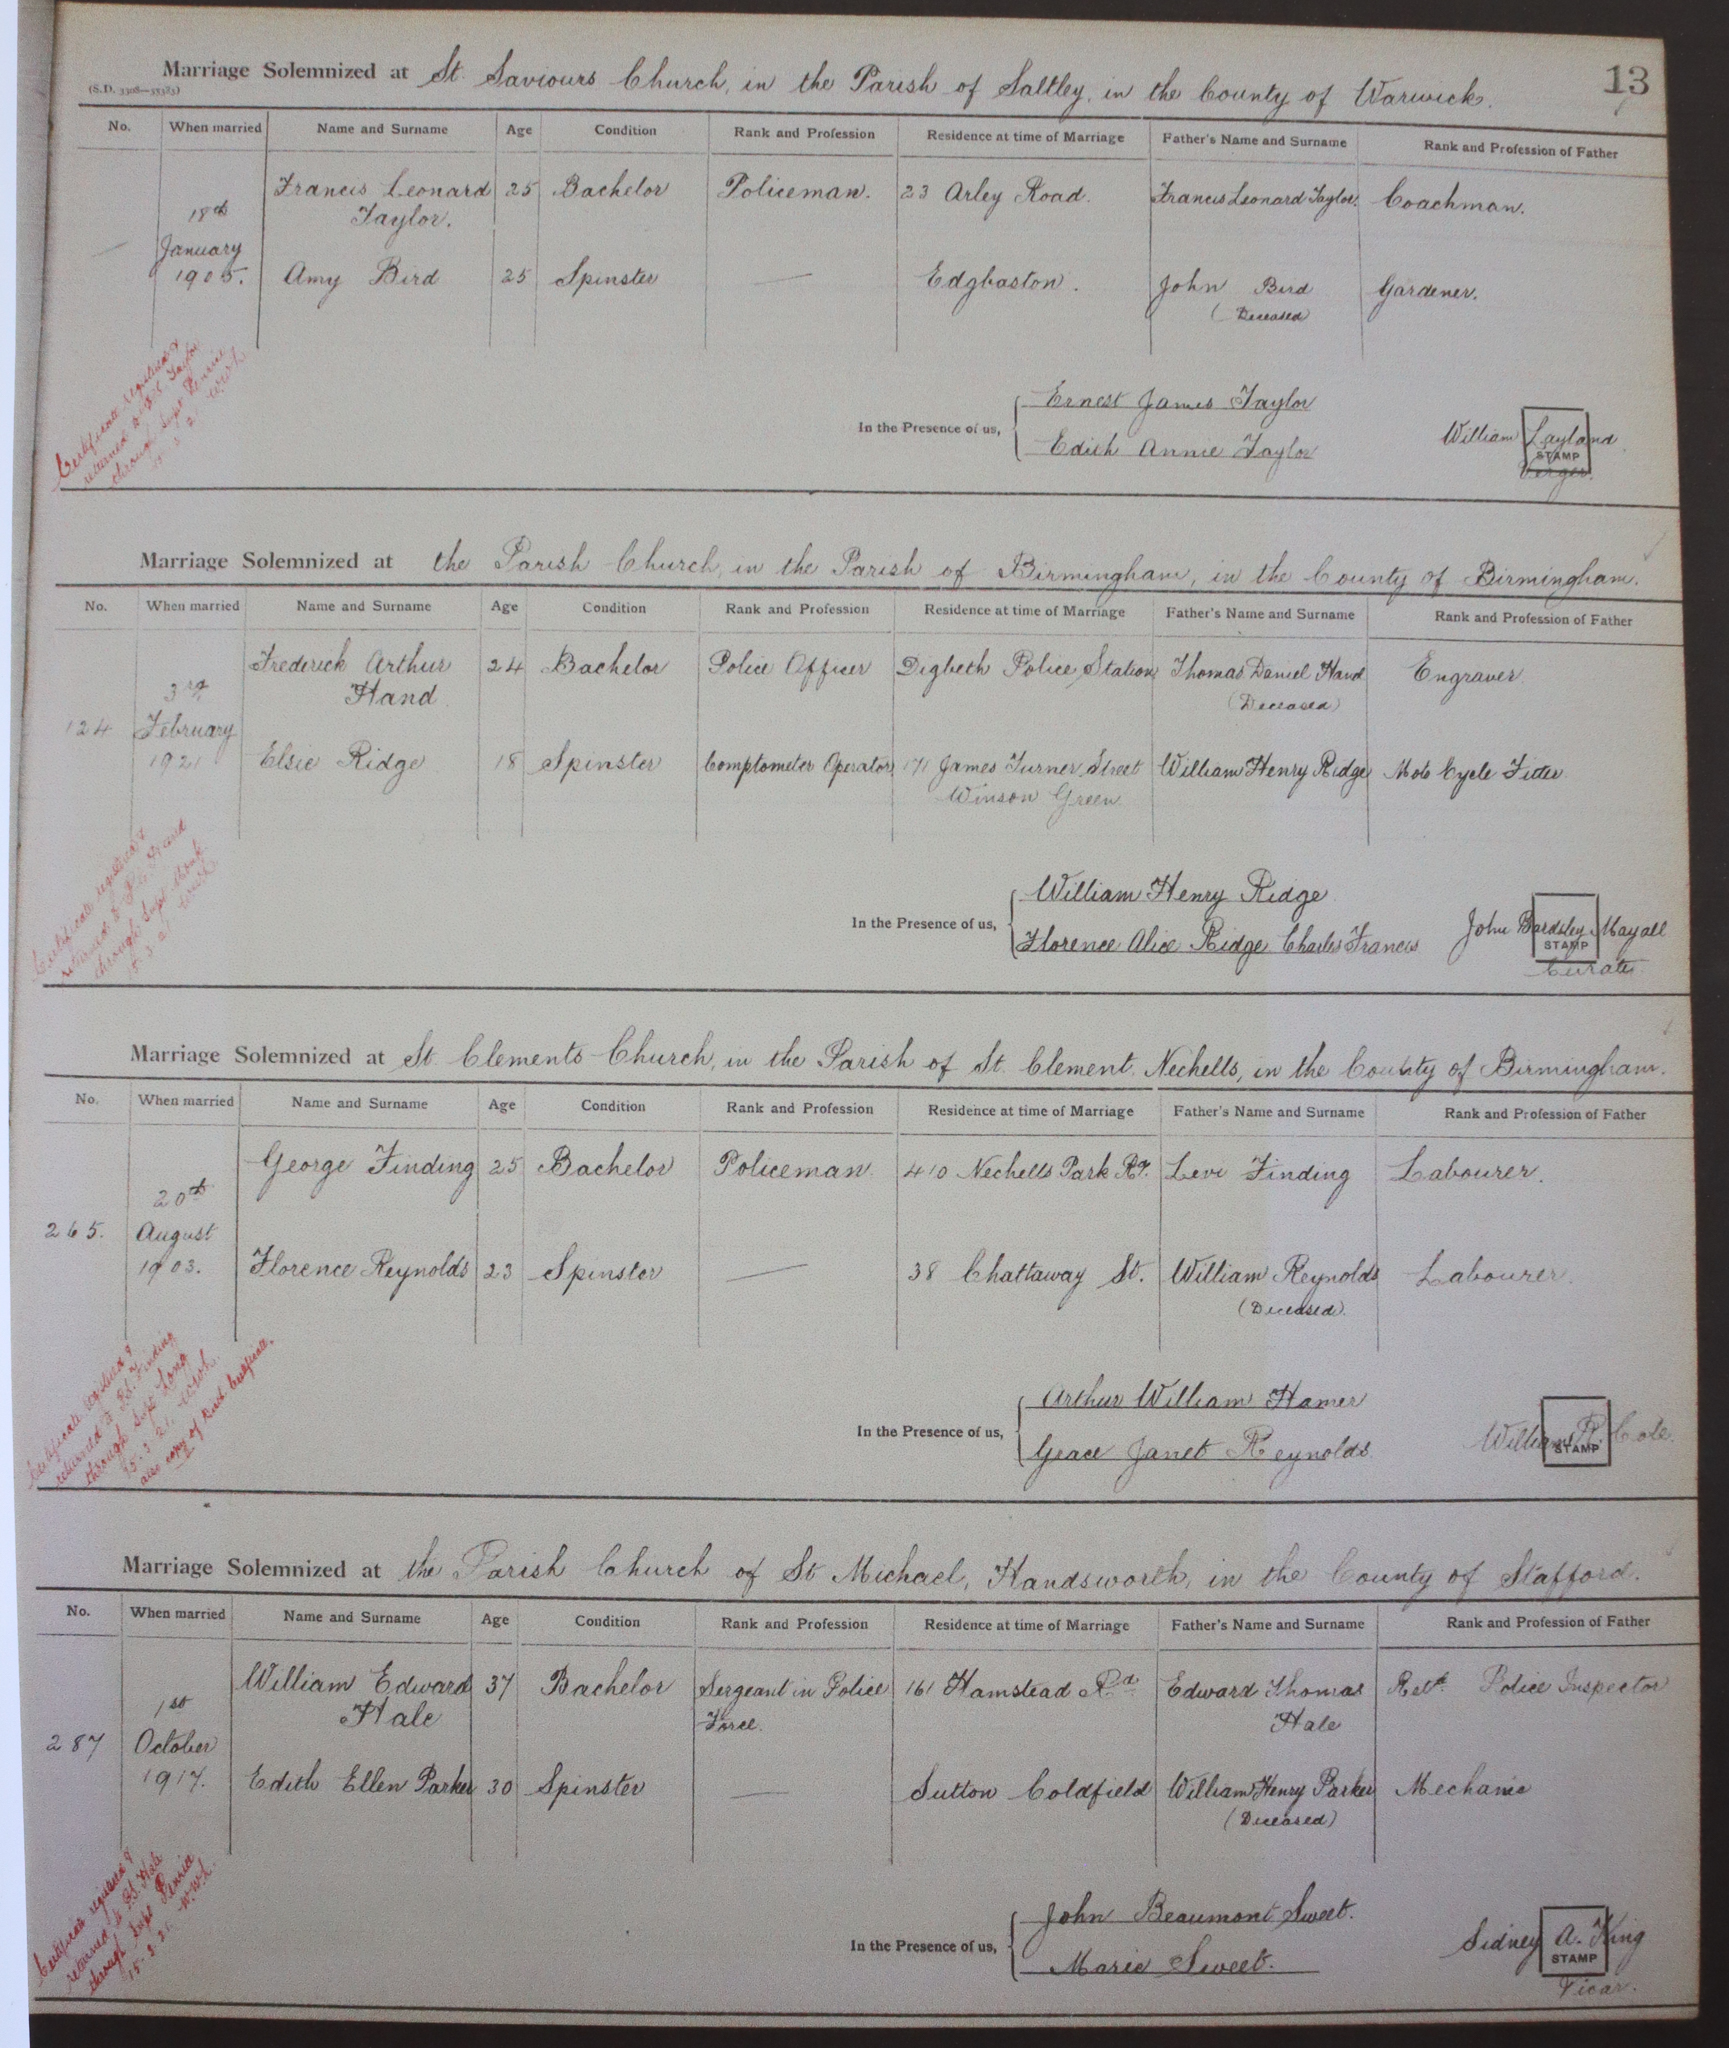 13
Marriage Solemnized at St. Saviours Church, in the Parish of Saltley, in the County of Warwick.
(S.D. 3308—35383)
No. When married Name and Surname Age Condition Rank and Profession Residence at time of Marriage Father's Name and Surname Rank and Profession of Father
Francis Leonard 25 Bachelor Policeman. 23 Arley Road. Francis Leonard Taylor. Coachman.
18th Taylor.
— January
1905. Amy Bird 25 Spinster — Edgbaston. John Bird Gardener.
(Deceased)
Certificate registered &
returned to Taylor
through Supt Penrice
15. 3. 21
Ernest James Taylor
In the Presence of us,
Edith Annie Taylor
William Layland
STAMP
Verger.
Marriage Solemnized at the Parish Church, in the Parish of Birmingham, in the County of Birmingham.
No. When married Name and Surname Age Condition Rank and Profession Residence at time of Marriage Father's Name and Surname Rank and Profession of Father
Frederick Arthur 24 Bachelor Police Officer Digbeth Police Station Thomas Daniel Hand Engraver
3rd Hand (Deceased)
124 February
1921 Elsie Ridge 18 Spinster Comptometer Operator 171 James Turner Street William Henry Ridge Moto Cycle Fitter
Winson Green
Certificate registered &
returned to P.C. Hand
through Supt Monk
3 21
William Henry Ridge
In the Presence of us,
Florence Alice Ridge Charles Francis
John Bardsley Mayall
STAMP
Curate.
Marriage Solemnized at St. Clements Church, in the Parish of St. Clement. Nechells, in the County of Birmingham.
No. When married Name and Surname Age Condition Rank and Profession Residence at time of Marriage Father's Name and Surname Rank and Profession of Father
George Finding 25 Bachelor Policeman 410 Nechells Park Rd. Levi Finding Labourer.
20th
265. August
1903. Florence Reynolds 23 Spinster — 38 Chattaway St. William Reynolds Labourer.
(Deceased)
Certificate registered &
returned to P.S. Finding
through Supt Long
15. 3. 21.
also copy of Birth Certificate.
Arthur William Hamer
In the Presence of us,
Grace Janet Reynolds
William R. Cole.
STAMP
Marriage Solemnized at the Parish Church of St Michael, Handsworth, in the County of Stafford.
No. When married Name and Surname Age Condition Rank and Profession Residence at time of Marriage Father's Name and Surname Rank and Profession of Father
William Edward 37 Bachelor Sergeant in Police 161 Hamstead Rd Edward Thomas Retd. Police Inspector
1st Hale Force. Hale
287 October
1917. Edith Ellen Parker 30 Spinster — Sutton Coldfield William Henry Parker Mechanic
(Deceased)
Certificate registered &
returned to P.S. Hale
through Supt Penrice
15. 3. 21.
John Beaumont Sweet.
In the Presence of us,
Marie Sweet.
Sidney A. King
STAMP
Vicar.